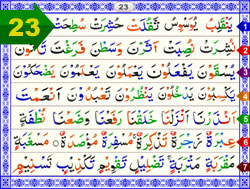 23
23
يَنْقَلِبُ يُوَسْوِسُ ثَقُلَتْ حُشِرَتْ سُطِحَتْ 1
نُشِرَتْ نُصِبَتْ اَثَرْنَ وَسَطْنَ فَرَغْتَ 2
يُسْقَوْنَ يَفْعَلُوْنَ يَعْلَمُوْنَ يَضْحَكُوْنَ 3
يَكْسِبُوْنَ يَدْخُلُوْنَ يَنْظُرُوْنَ تَعْبُدُوْنَ اَنْعَمْتَ 4
اَنْذَرْنَا اَنْزَلْنَا خَلَقْنَا رَفَعْنَا وَضَعْنَا نُطْفَةٍ 5
عِبْرَةً زَجْرَةٌ تَذْكِرَةٌ مُسْفِرَةٌ مُؤْصَدَةٌ مَسْغَبَةٍ 6
مَقْرَبَةٍ مَتْرَبَةٍ تَضْلِيْلٍ تَقْوِيْمٍ تَكْذِيْبٍ تَسْنِيْمٍ 7